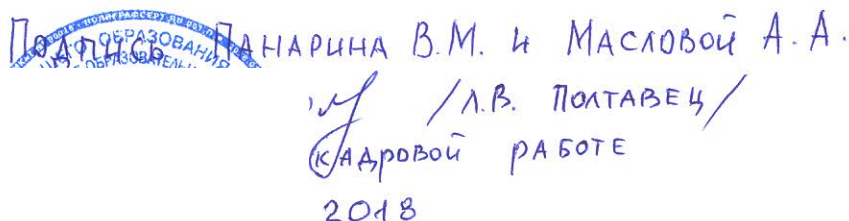 Подпись Панарина В.М. и Масловой А.А.
/Л.В. Полтавец/
кадровой работе
2018
ОБРАЗОВАНИЯ